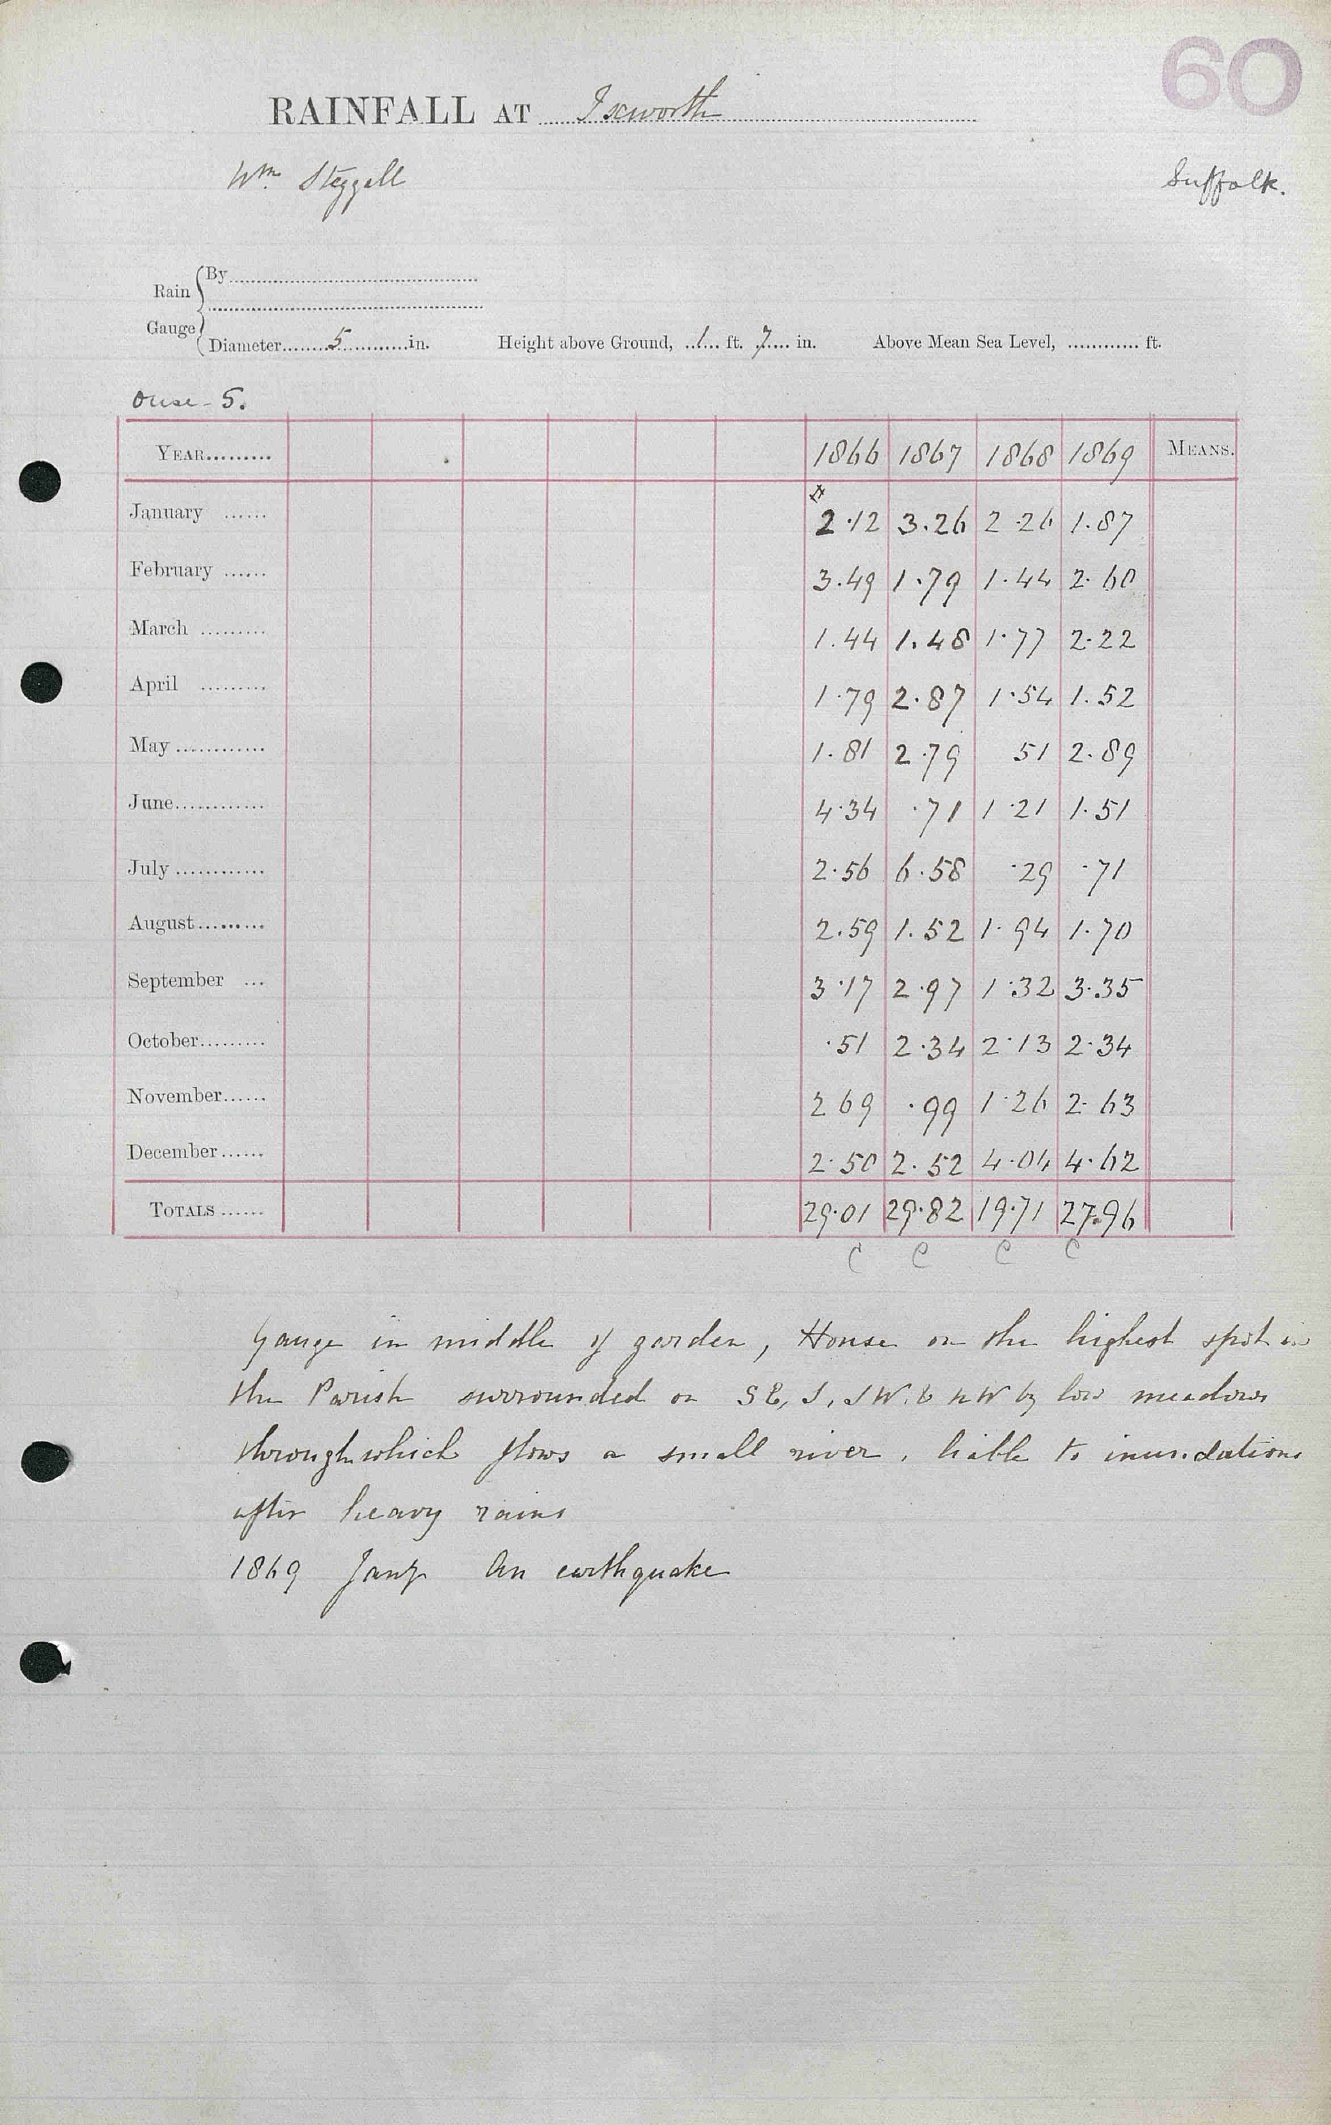 60
RAINFALL AT Ixworth
Wm. Steggall
Suffolk.
Rain Gauge { By
Diameter 5 in. Height above Ground, 1 ft. 7 in. Above Mean Sea Level, ft.
Ouse - 5.
YEAR 1866 1867 1868 1869 MEANS.
January 2.12 3.26 2 26 1.87
February 3.49 1.79 1.44 2.60
March 1.44 1.48 1.77 2.22
April 1.79 2.87 1.54 1.52
May 1.81 2.79 51 2.89
June 4.34 .71 1 21 1.51
July 2.56 6.58 .29 .71
August 2.59 1.52 1.94 1.70
September 3.17 2.97 1.32 3.35
October .51 2.34 2.13 2.34
November 2 69 .99 1.26 2.63
December 2.50 2.52 4.04 4.62
TOTALS 29.01 29.82 19.71 27.96
C C C C
Gauge in middle of garden, House on the highest spot in
the Parish surrounded on SE, S, SW. & NW by low meadows
through which flows a small river, liable to inundations
after heavy rains
1869 Jany An earthquake